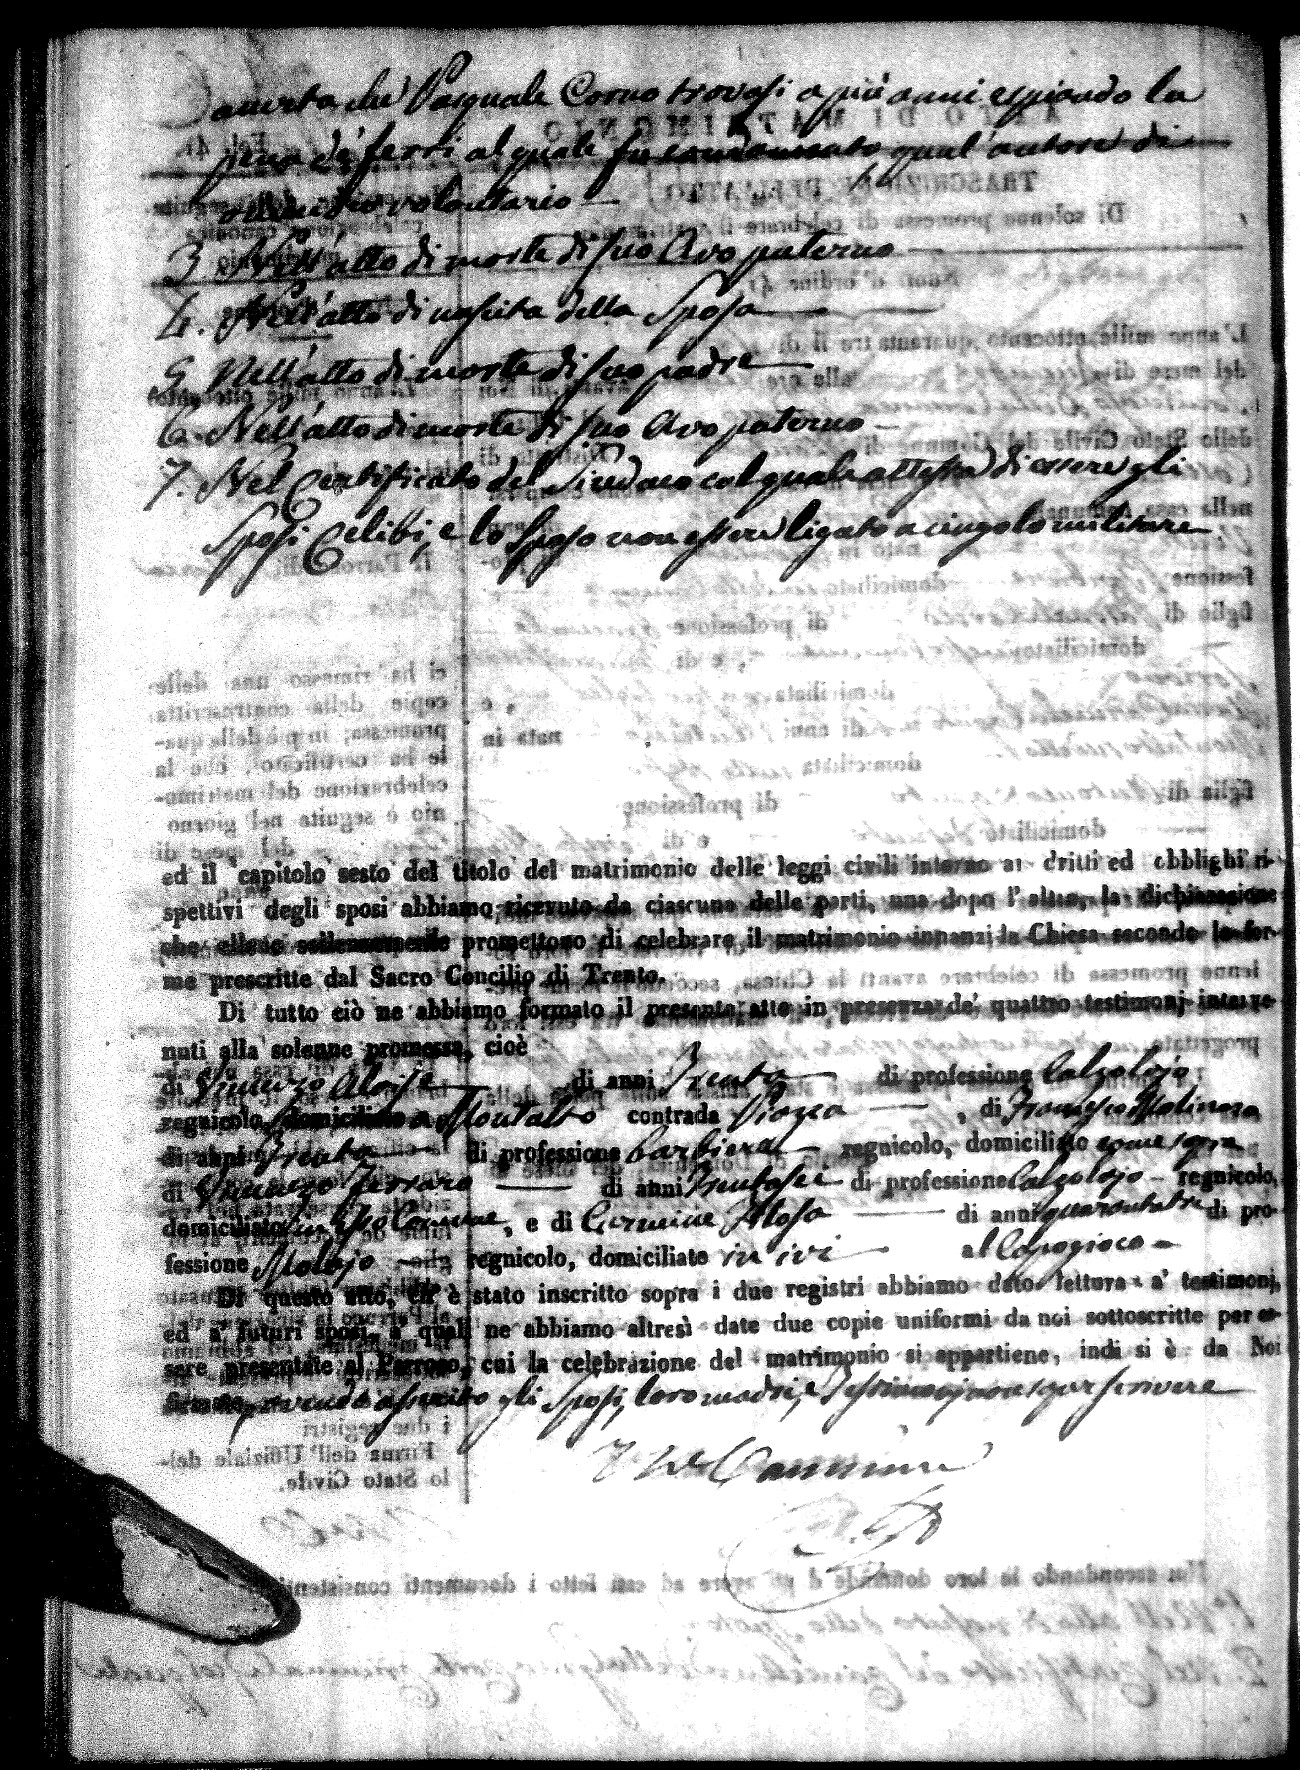 accerta che Pasquale Corno trovasi a più anni espiando la
pena de' ferri al quale fu condannato qual'autore di
omicidio volontario
3. Nell'atto di morte di suo Avo paterno
4. Nell'atto di nascita della Sposa
5. Nell'atto di morte di suo padre
6. Nell'atto di morte di suo Avo paterno
7. Nel Certificato del Sindaco col quale attesta di essere gli
Sposi Celibi, e lo Sposo non essere ligato a cingolo militare
ed il capitolo sesto del titolo del matrimonio delle leggi civili intorno ai dritti ed obblighi ri-
spettivi degli sposi abbiamo ricevuto da ciascuna delle parti, una dopo l'altra, la dichiarazione
che elleno sollennemente promettono di celebrare il matrimonio innanzi la Chiesa secondo le for-
me prescritte dal Sacro Concilio di Trento.
Di tutto ciò ne abbiamo formato il presente atto in presenza de' quattro testimonj interve-
nuti alla solenne promessa, cioè
di Vincenzo Aloise di anni Trenta di professione Calzolajo
regnicolo, domiciliato a Montalto contrada Piazza, di Francesco Molinaro
di anni Trenta di professione barbiere regnicolo, domiciliato come sopra
di Vincenzo Ferraro di anni Trentasei di professione Calzolajo regnicolo,
domiciliato in Comune, e di Carmine di anni quarantatre di pro-
fessione regnicolo, domiciliato in ivi al Capogioco
Di questo atto, ch'è stato inscritto sopra i due registri abbiamo dato lettura a' testimonj,
ed a' futuri sposi, a' quali ne abbiamo altresì date due copie uniformi da noi sottoscritte per es-
sere presentate al Parroco, cui la celebrazione del matrimonio si appartiene, indi si è da Noi
firmato, avendo asserito gli Sposi, loro madri, e Testimonj non saper scrivere